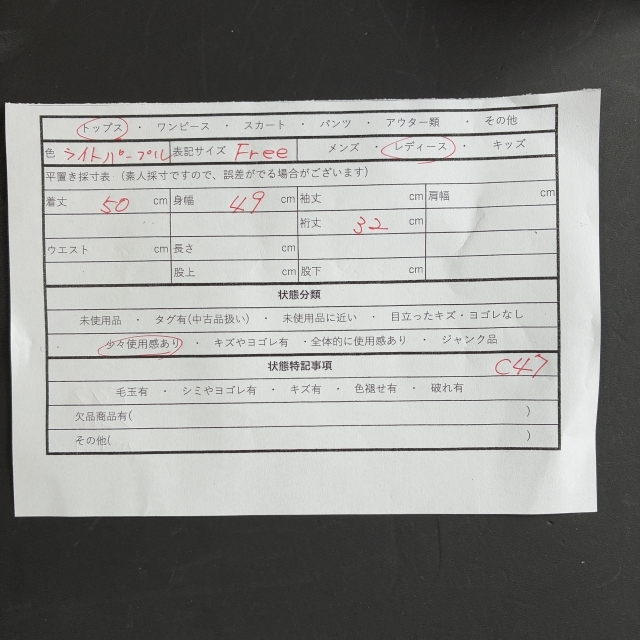 トップス ・ ワンピース ・ スカート ・ パンツ ・ アウター類 ・ その他
色 ライトパープル 表記サイズ Free メンズ ・ レディース ・ キッズ
平置き採寸表 (素人採寸ですので、誤差がでる場合がございます)
着丈 50 cm 身幅 49 cm 袖丈 cm 肩幅 cm
裄丈 32 cm
ウエスト cm 長さ cm
股上 cm 股下 cm
状態分類
未使用品 ・ タグ有(中古品扱い) ・ 未使用品に近い ・ 目立ったキズ・ヨゴレなし
少々使用感あり ・ キズやヨゴレ有 ・全体的に使用感あり ・ ジャンク品
状態特記事項 C47
毛玉有 ・ シミやヨゴレ有 ・ キズ有 ・ 色褪せ有 ・ 破れ有
欠品商品有( )
その他( )